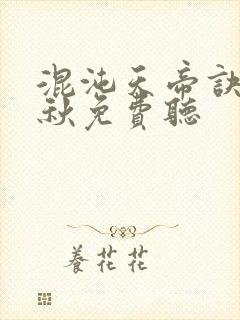 混沌天帝訣
秋免費聽
養花花